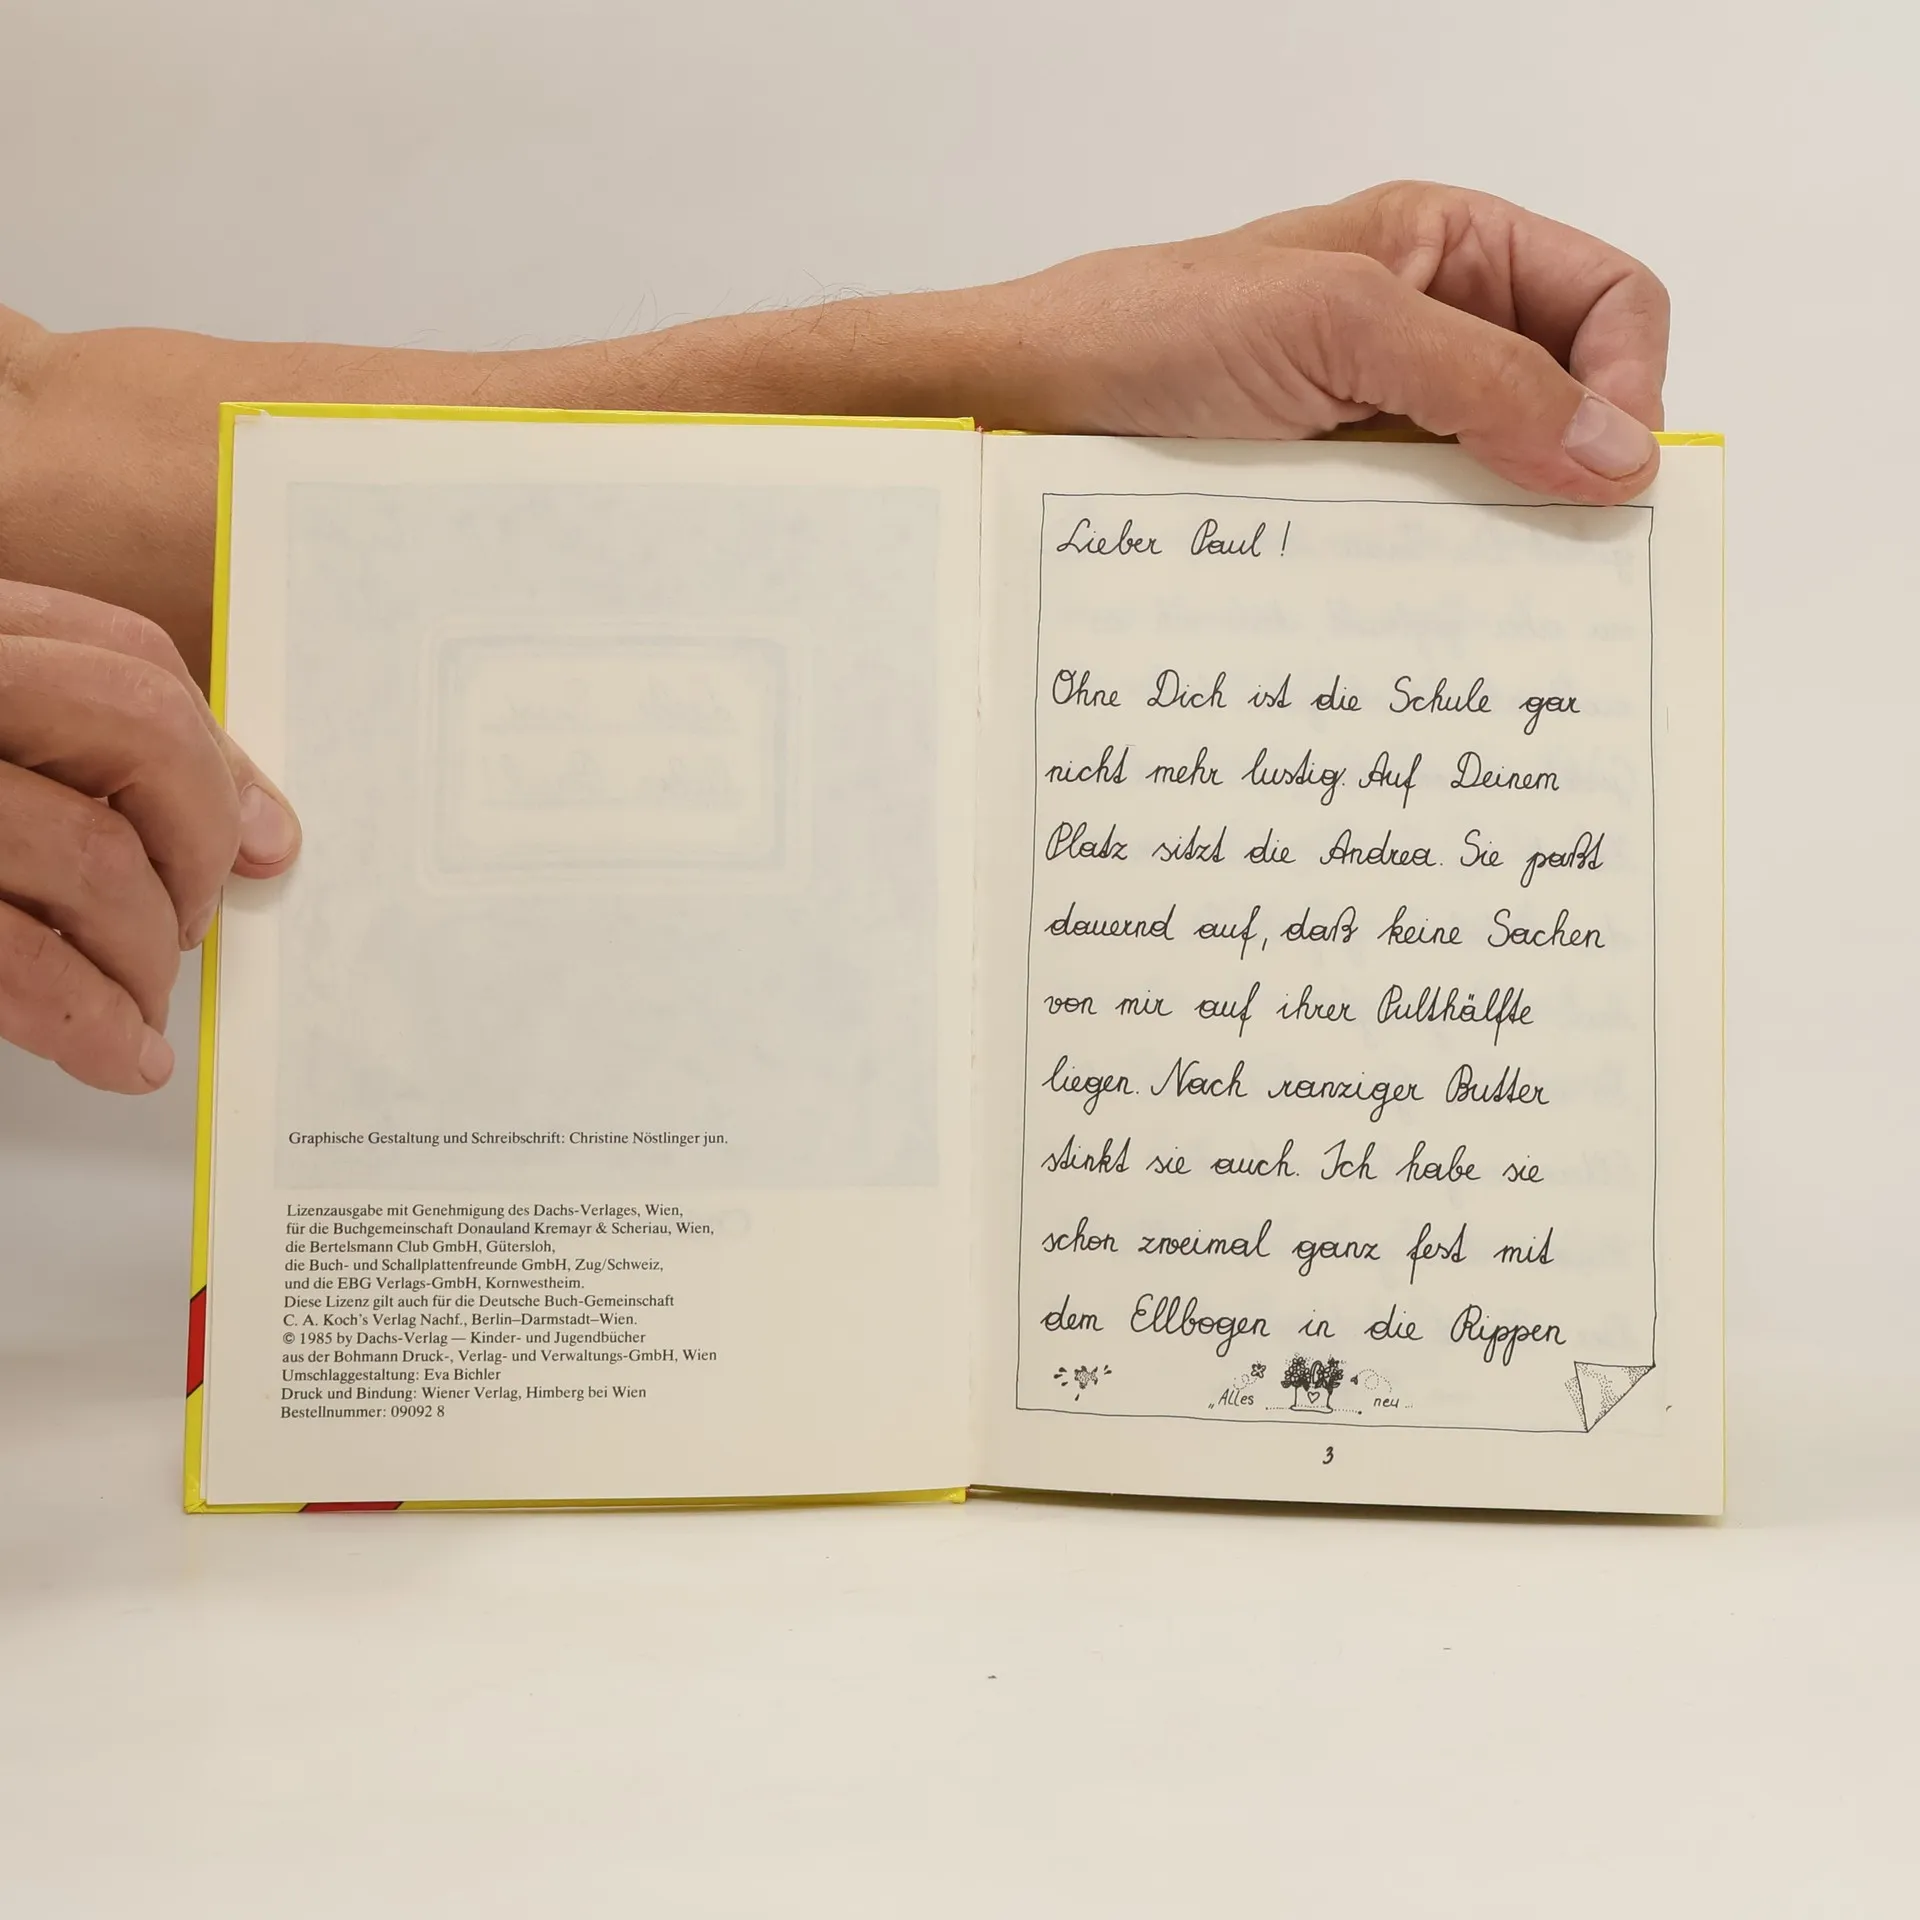 Graphische Gestaltung und Schreibschrift: Christine Nöstlinger jun.
Lizenzausgabe mit Genehmigung des Dachs-Verlages, Wien,
für die Buchgemeinschaft Donauland Kremayr & Scheriau, Wien,
die Bertelsmann Club GmbH, Gütersloh,
die Buch- und Schallplattenfreunde GmbH, Zug/Schweiz,
und die EBG Verlags-GmbH, Kornwestheim.
Diese Lizenz gilt auch für die Deutsche Buch-Gemeinschaft
C. A. Koch's Verlag Nachf., Berlin–Darmstadt–Wien.
© 1985 by Dachs-Verlag — Kinder- und Jugendbücher
aus der Bohmann Druck-, Verlag- und Verwaltungs-GmbH, Wien
Umschlaggestaltung: Eva Bichler
Druck und Bindung: Wiener Verlag, Himberg bei Wien
Bestellnummer: 09092 8
Lieber Paul!
Ohne Dich ist die Schule gar
nicht mehr lustig. Auf Deinem
Platz sitzt die Andrea. Sie paßt
dauernd auf, daß keine Sachen
von mir auf ihrer Pulthälfte
liegen. Nach ranziger Butter
stinkt sie auch. Ich habe sie
schon zweimal ganz fest mit
dem Ellbogen in die Rippen
„Alles neu...
3